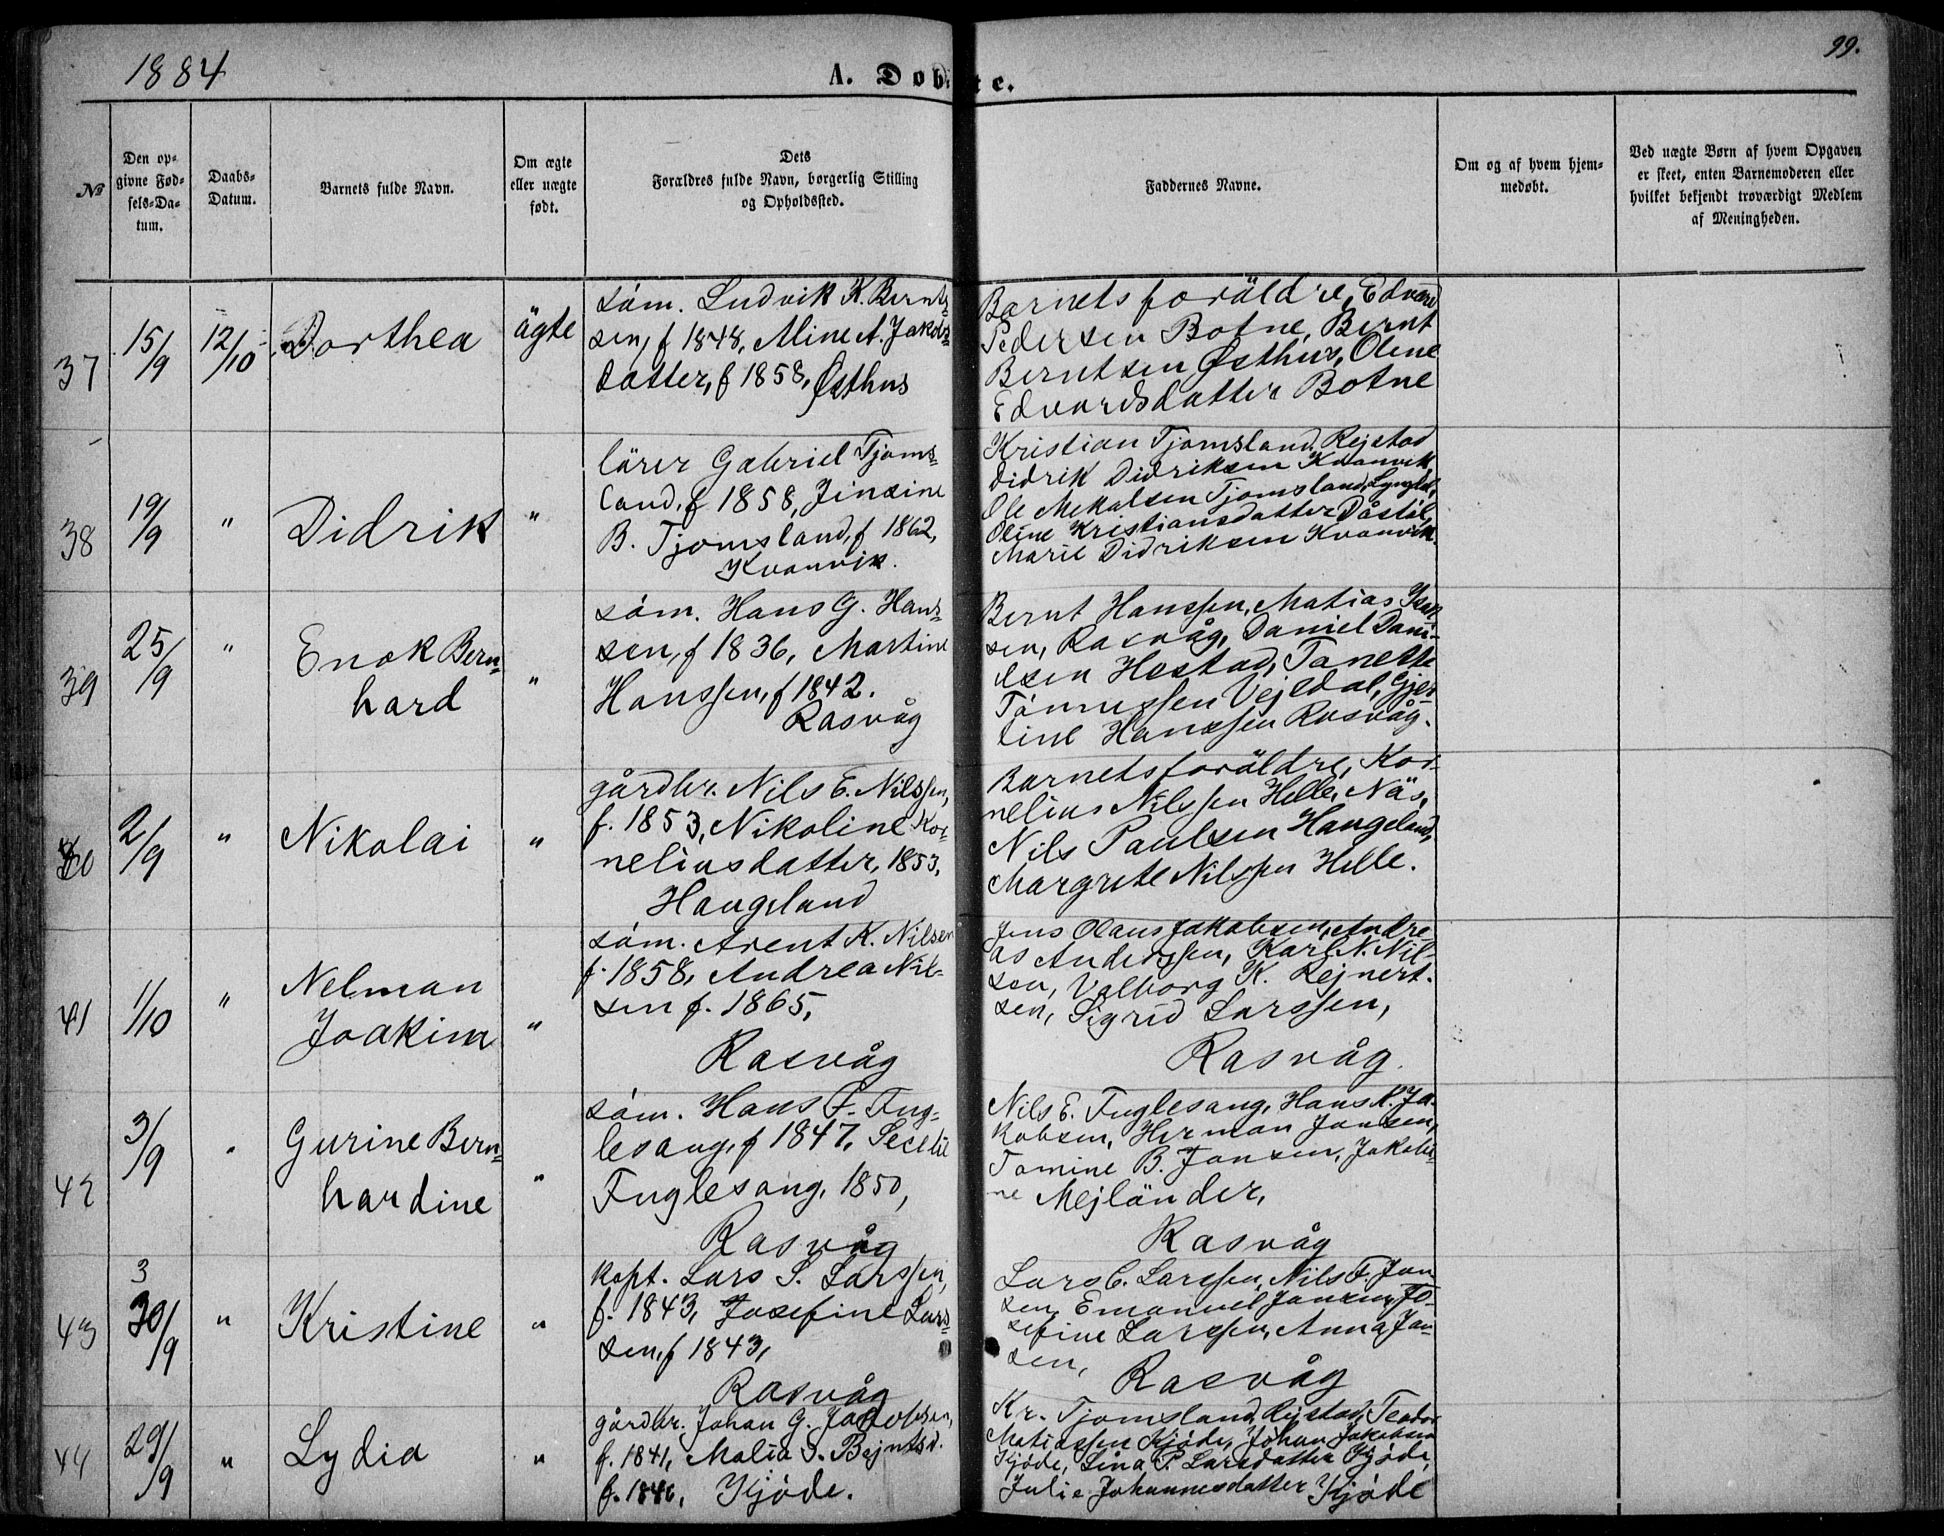 1884
A. Døbte.
99.
№
Den op-
givne Fød-
sels-Da-
tum.
Daabs-
Datum.
Barnets fulde Navn.
Om ægte
eller uægte
født.
Dets
Forældres fulde Navn, borgerlig Stilling
og Opholdssted.
Faddernes Navne.
Om og af hvem hjem-
medøbt.
Ved uægte Børn af hvem Opgaven
er skeet, enten Barnemoderen eller
hvilket bekjendt troværdigt Medlem
af Meningheden.
37
15/9
12/10
Dorthea
ägte
söm. Ludvik K. Bernt-
sen, f 1848, Mine A. Jakobs-
datter, f 1858, Østhus
Barnets foräldre, Edvard
Pedersen Botne, Bernt
Berntsen Østhus, Oline
Edvardsdatter Botne
38
19/9
"
Didrik
"
lärer Gabriel Tjoms-
land, f 1858, Jinsine
B. Tjomsland, f 1862,
Kvanvik.
Kristian Tjomsland, Rejstad
Didrik Didriksen Kvanvik,
Ole Mekalsen Tjomsland, Lyngdal,
Oline Kristiansdatter Dåstöl,
Marie Didriksen Kvanvik.
39
25/9
"
Enok Bern-
hard
"
söm. Hans G. Hans-
sen, f 1836, Martine
Hanssen, f 1842.
Rasvåg
Bernt Hanssen, Matias Isak
sen, Rasvåg, Daniel Dani-
elsen Hestad, Tanette
Tönnessen Vejldal, Gjer-
tine Hanssen Rasvåg.
40
2/9
"
Nikolai
"
gårdbr. Nils E. Nilssen,
f. 1853, Nikoline Kor-
neliusdatter, 1853,
Haugeland
Barnets foräldre, Kor-
nelius Nilssen Helle, Näs,
Nils Paulsen Haugeland,
Margrete Nilssen Helle.
41
1/10
"
Nelman
Joakim
"
söm. Arent K. Nilsen
f. 1858, Andrea Nil-
sen f. 1865,
Rasvåg
Jens Olaus Jakobsen, Andre-
as Anderssen, Karl N. Nil-
sen, Valborg K. Rejnert-
sen, Sigrid Larssen,
Rasvåg.
42
3/9
"
Gurine Bern-
hardine
"
söm. Hans F. Fug-
lesang, f 1847, Secelie
Fuglesang, 1850,
Rasvåg
Nils E. Fuglesang, Hans K. Ja-
kobsen, Herman Jansen,
Tomine B. Jansen, Jakobi-
ne Mejländer,
Rasvåg
43
3
30/9
"
Kristine
"
kapt. Lars S. Larssen,
f. 1843, Josefine Lars-
sen, f 1843,
Rasvåg
Lars C. Larssen, Nils F. Jan
sen, Emanuel Jansen, Jo-
sefine Larssen, Anna Jan-
sen,
Rasvåg
44
29/9
"
Lydia
"
gårdbr. Johan G. Jacobsen,
f. 1841, Malia S. Bejntsd.
f. 1846, Kjöde.
Kr. Tjomsland, Rejstad, Teodor
Matiassen Kjöde, Johan Jakobsen
Kjöde, Lina P. Larsdatter Kjöde,
Julie Johannesdatter Kjöde